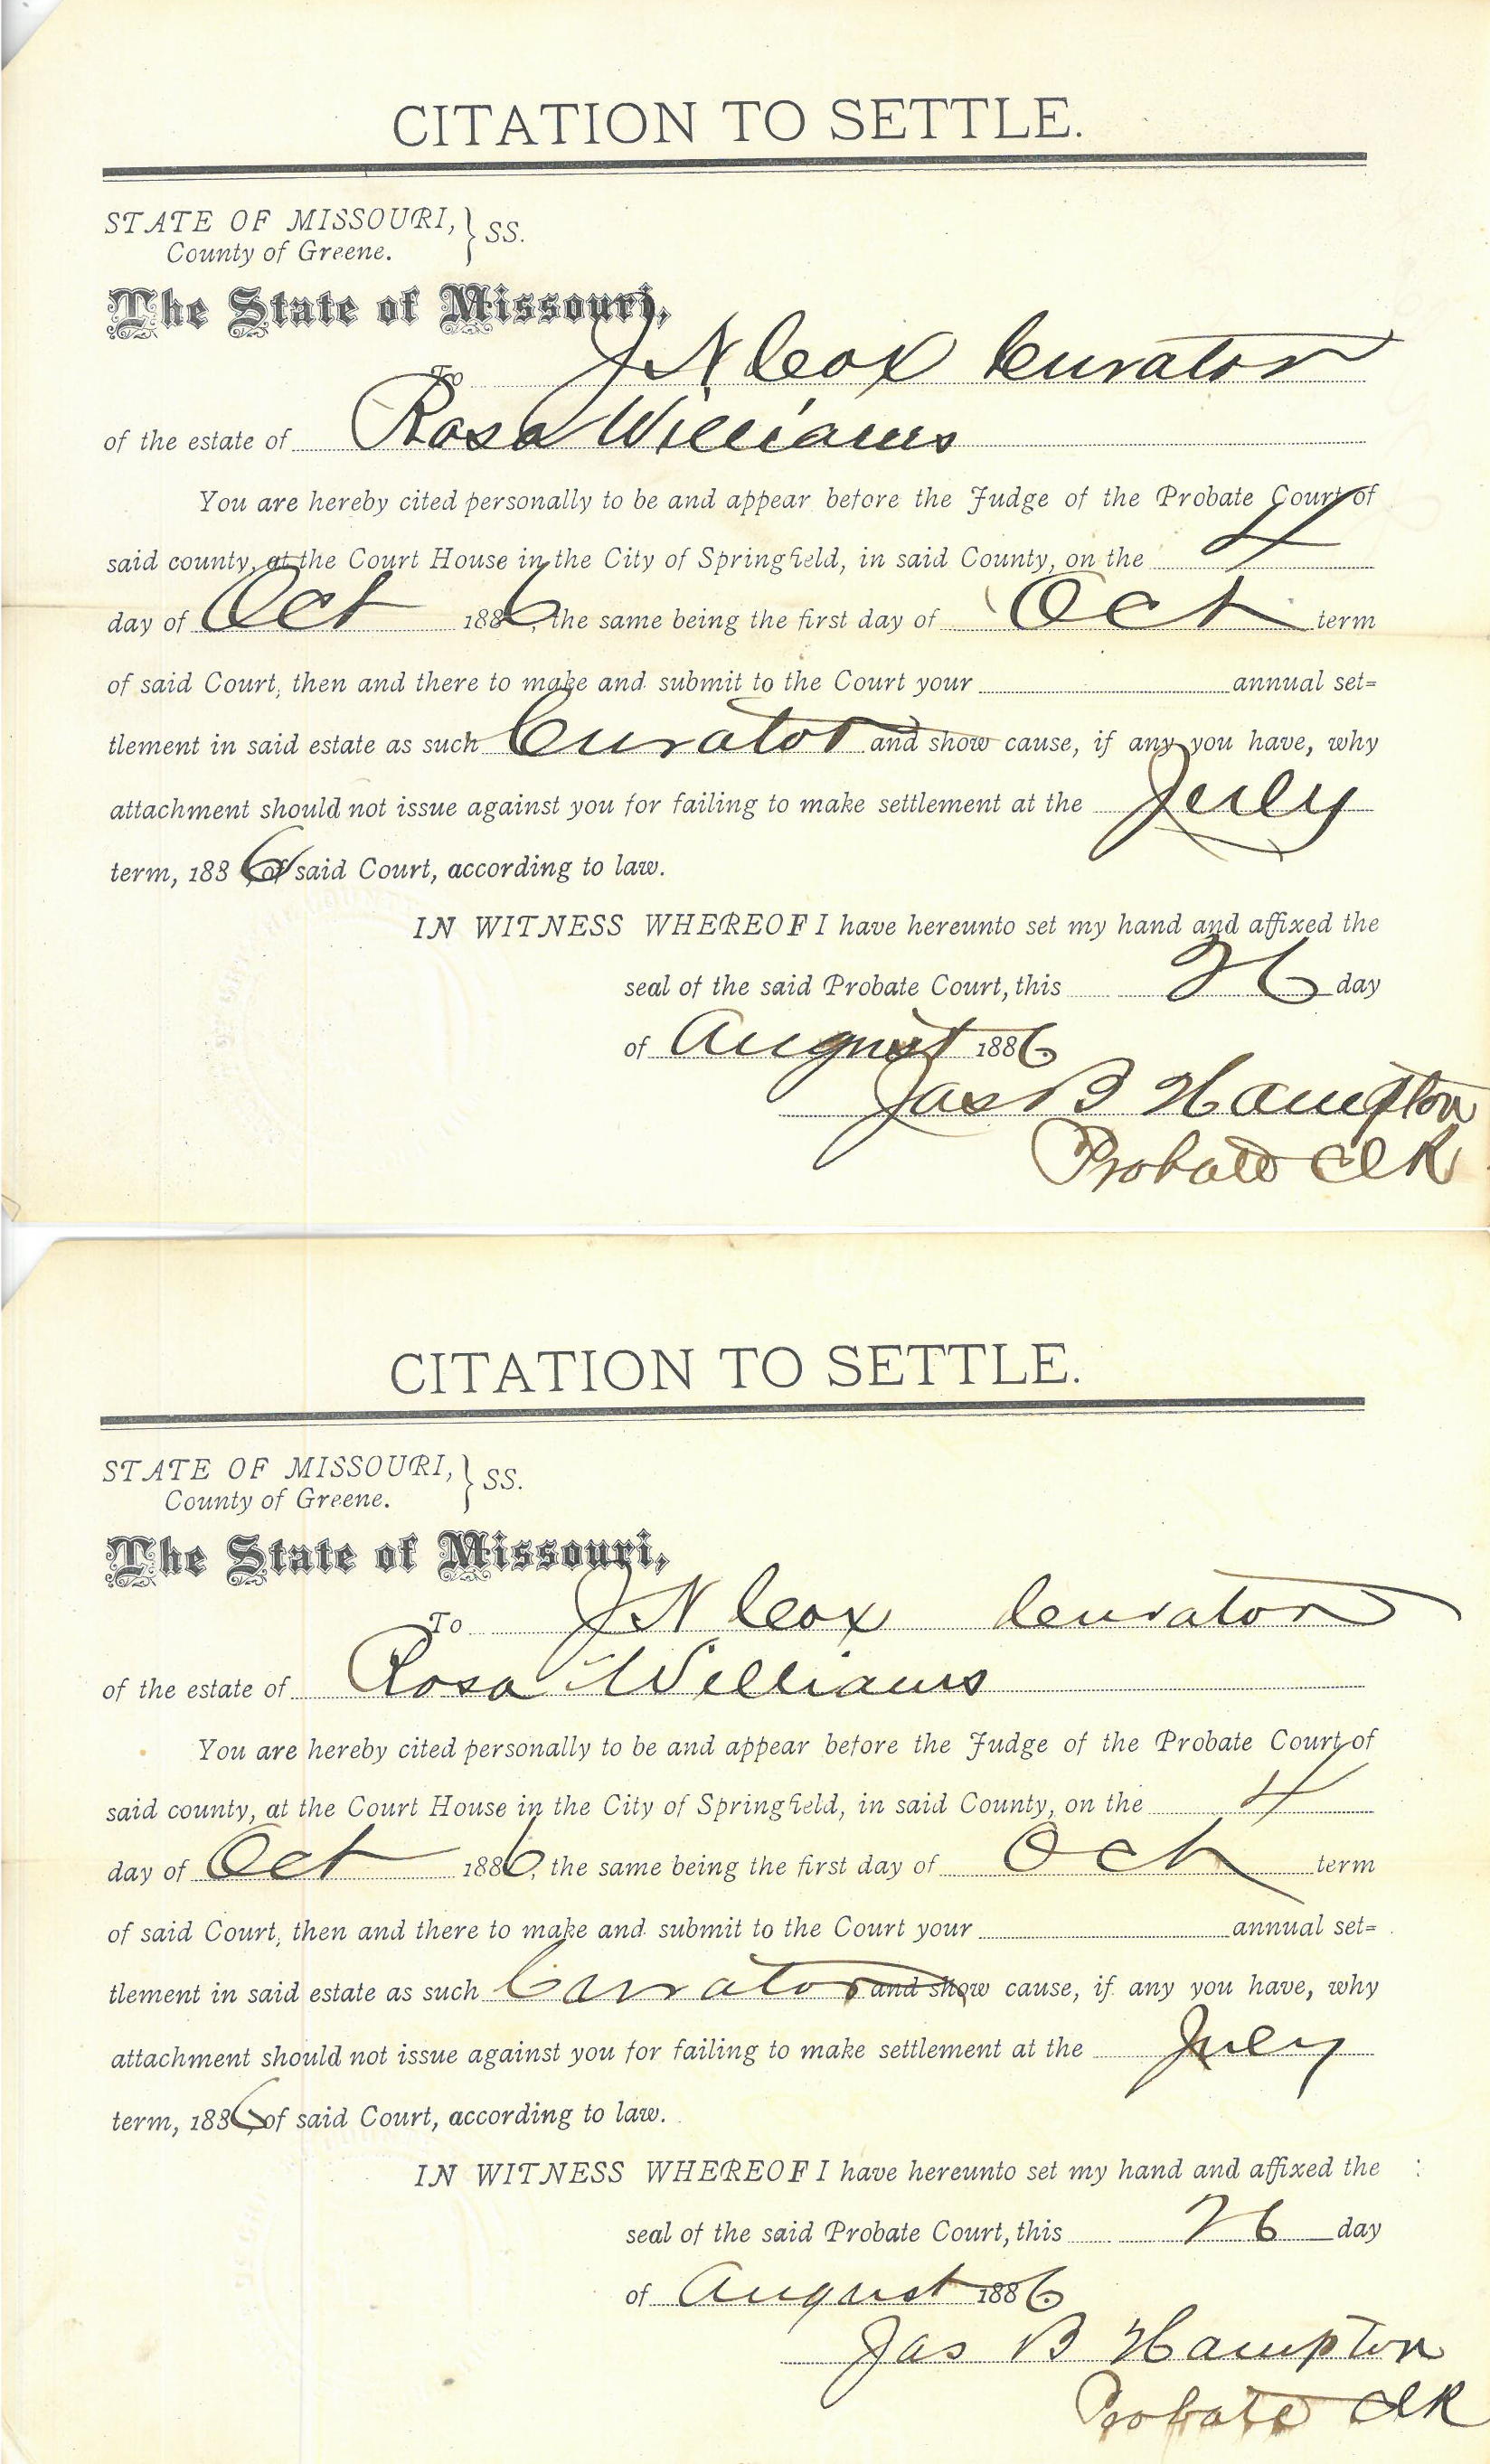 CITATION TO SETTLE.
STATE OF MISSOURI, } SS.
County of Greene.
The State of Missouri,
To J N Cox Curator
of the estate of Rosa Williams
You are hereby cited personally to be and appear before the Judge of the Probate Court of
said county, at the Court House in the City of Springfield, in said County, on the 4
day of Oct 1886, the same being the first day of Oct term
of said Court, then and there to make and submit to the Court your annual set=
tlement in said estate as such Curator and show cause, if any you have, why
attachment should not issue against you for failing to make settlement at the July
term, 1886, of said Court, according to law.
IN WITNESS WHEREOF I have hereunto set my hand and affixed the
seal of the said Probate Court, this 26 day
of August 1886.
Jas B Hampton
Probate Clk
CITATION TO SETTLE.
STATE OF MISSOURI, } SS.
County of Greene.
The State of Missouri,
To J N Cox Curator
of the estate of Rosa Williams
You are hereby cited personally to be and appear before the Judge of the Probate Court of
said county, at the Court House in the City of Springfield, in said County, on the 4
day of Oct 1886, the same being the first day of Oct term
of said Court, then and there to make and submit to the Court your annual set=
tlement in said estate as such Curator and show cause, if any you have, why
attachment should not issue against you for failing to make settlement at the July
term, 1886, of said Court, according to law.
IN WITNESS WHEREOF I have hereunto set my hand and affixed the
seal of the said Probate Court, this 26 day
of August 1886.
Jas B Hampton
Probate Clk